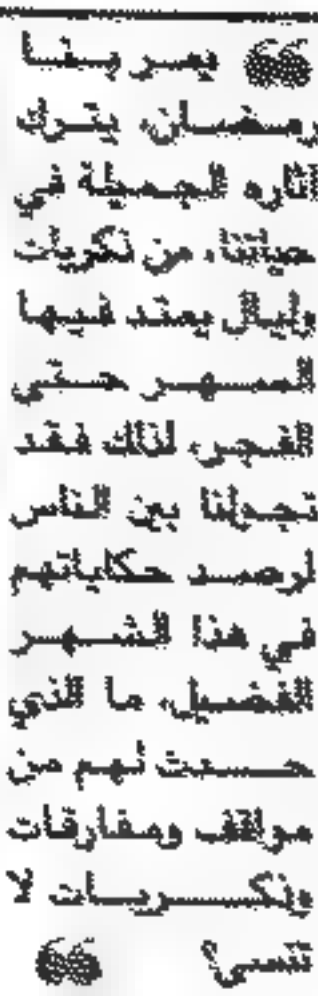 ❝ يمر بنا
رمضان، يترك
آثاره الجميلة في
حياتنا، من ذكريات
وليال يمتد فيها
السهر حتى
الفجر، لذلك فقد
تجولنا بين الناس
لرصد حكاياتهم
في هذا الشهر
الفضيل، ما الذي
حدث لهم من
مواقف ومفارقات
وذكريات لا
تنسى؟ ❝